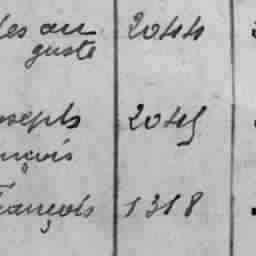 les au 2044
guste
oseph 2045
nçois
François 1318